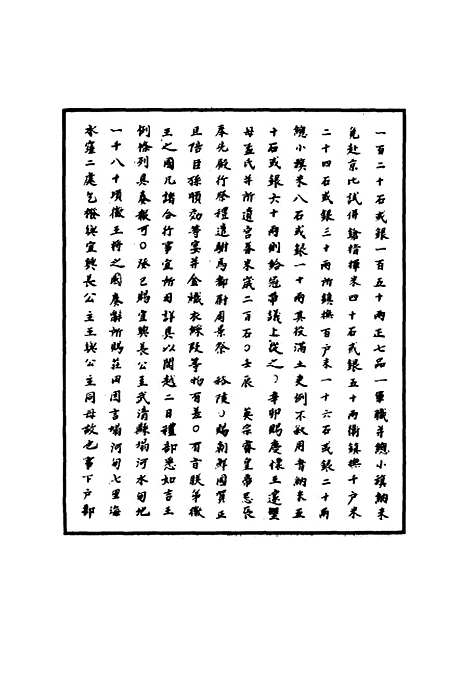 一百二十石或銀一百五十兩正七品一軍職并總小旗納米
免赴京比試併鎗指揮米四十石或銀五十兩衛鎮撫千戶米
二十四石或銀三十兩所鎮撫百戶米一十六石或銀二十兩
總小旗米八石或銀一十兩其投滿土吏例不秋用者納米五
十石或銀六十兩則給冠帶議上從之○辛卯賜慶懷王邃塈
母孟氏并所遺宮眷米歲二百石○壬辰　英宗睿皇帝忌辰
奉先殿行祭禮遣駙馬都尉周景祭　裕陵○賜朝鮮國賀正
旦陪臣孫順効等宴并金織衣綵叚等物有差○有旨朕弟徽
王之國凡諸合行事宜所司詳具以聞越二日禮部悉如吉王
例條列具奏報可○癸巳賜宜興長公主武清縣塌河水甸地
一千八十頃徽王將之國奏辭所賜莊田因言塌河甸七里海
水窪二處乞撥與宜興長公主王與公主同母故也事下戶部